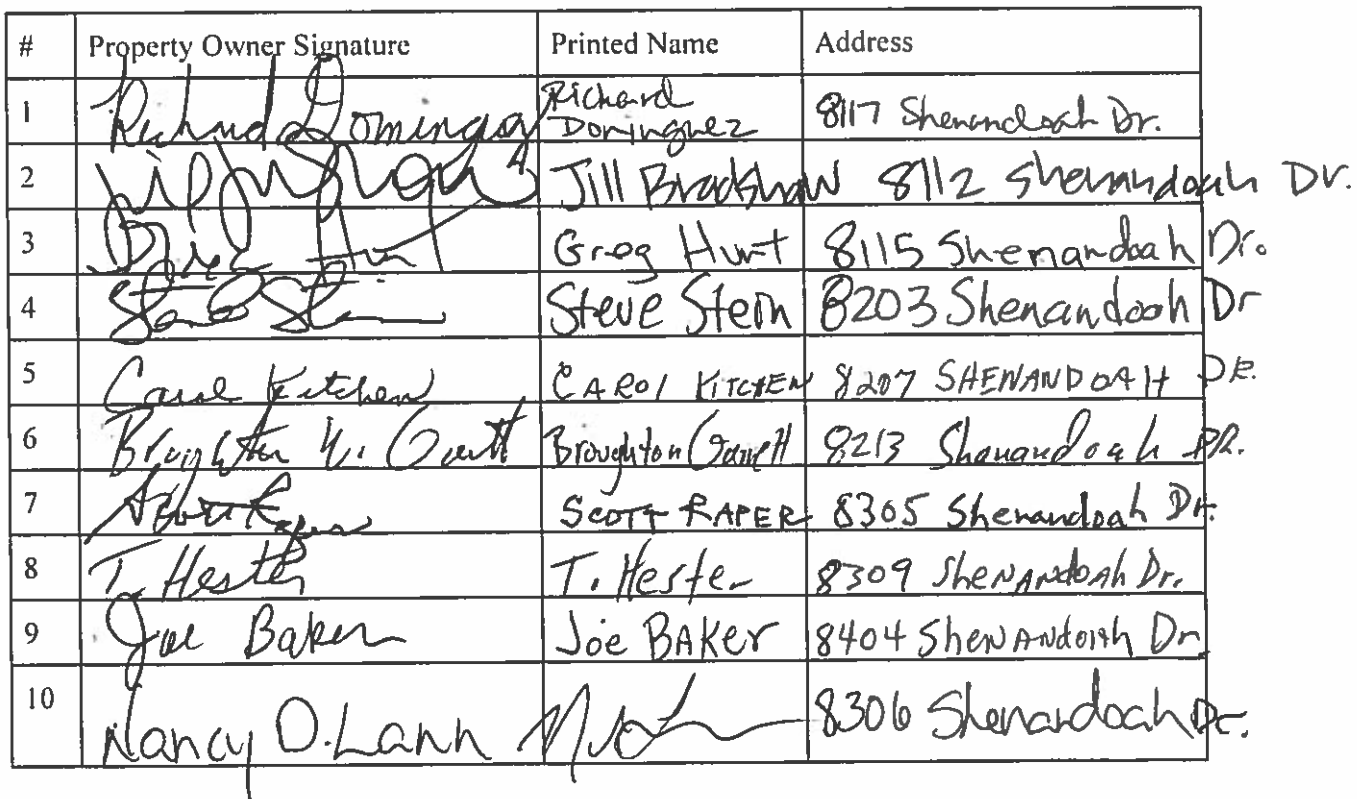 # Property Owner Signature Printed Name Address
1 Richard Dominguez Richard Dominguez 8117 Shenandoah Dr.
2 Jill Bradshaw 8112 Shenandoah Dr.
3 Greg Hurt 8115 Shenandoah Dr.
4 Steve Stern Steve Stern 8203 Shenandoah Dr
5 Carol Kitchen CAROl KITCHEN 8207 SHENANDOAH DR.
6 Broughton Garrett 8213 Shenandoah DR.
7 Scott Raper SCOTT RAPER 8305 Shenandoah Dr.
8 T. Hester T. Hester 8309 Shenandoah Dr.
9 Joe Baker Joe BAKER 8404 Shenandoah Dr
10 Nancy D. Lann 8306 Shenandoah Dr.